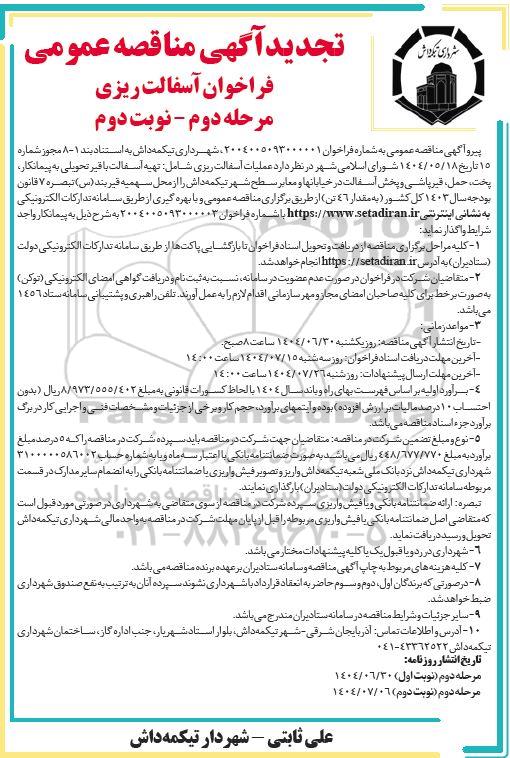 شهرداری تیکمه‌داش
تجدید آگهی مناقصه عمومی
فراخوان آسفالت ریزی
مرحله دوم - نوبت دوم
پیرو آگهی مناقصه عمومی به شماره فراخوان ۲۰۰۴۰۰۵۰۹۳۰۰۰۰۰۱، شهرداری تیکمه‌داش به استناد بند ۱-۸ مجوز شماره
۱۵ تاریخ ۱۴۰۴/۰۵/۱۸ شورای اسلامی شهر در نظر دارد عملیات آسفالت ریزی شامل: تهیه آسفالت با قیر تحویلی به پیمانکار،
پخت، حمل، قیرپاشی و پخش آسفالت در خیابانها و معابر سطح شهر تیکمه‌داش را از محل سهمیه قیر بند (س) تبصره ۷ قانون
بودجه سال ۱۴۰۳ کل کشور (به مقدار ۴۶ تن) از طریق برگزاری مناقصه عمومی و با بهره گیری از طریق سامانه تدارکات الکترونیکی
به نشانی اینترنتی https://www.setadiran.ir با شماره فراخوان ۲۰۰۴۰۰۵۰۹۳۰۰۰۰۰۳ به شرح ذیل به پیمانکار واجد
شرایط واگذار نماید:
۱- کلیه مراحل برگزاری مناقصه از دریافت و تحویل اسناد فراخوان تا بازگشایی پاکت‌ها از طریق سامانه تدارکات الکترونیکی دولت
(ستادیران) به آدرس https://setadiran.ir انجام خواهد شد.
۲- متقاضیان شرکت در فراخوان در صورت عدم عضویت در سامانه، نسبت به ثبت نام و دریافت گواهی امضای الکترونیکی (توکن)
به صورت برخط برای کلیه صاحبان امضای مجاز و مهر سازمانی اقدام لازم را به عمل آورند. تلفن راهبری و پشتیبانی سامانه ستاد ۱۴۵۶
می‌باشد.
۳- مواعد زمانی:
-تاریخ انتشار آگهی مناقصه: روز یکشنبه ۱۴۰۴/۰۶/۳۰ ساعت ۸ صبح.
-آخرین مهلت دریافت اسناد فراخوان: روز سه شنبه ۱۴۰۴/۰۷/۱۵ ساعت ۱۴:۰۰
-آخرین مهلت ارسال پیشنهادات: روز شنبه ۱۴۰۴/۰۷/۲۶ ساعت ۱۴:۰۰
۴- برآورد اولیه بر اساس فهرست بهای راه و باند سال ۱۴۰۴ با لحاظ کسورات قانونی به مبلغ ۸/۹۷۳/۵۵۵/۴۰۲ ریال (بدون
احتساب ۱۰ درصد مالیات بر ارزش افزوده) بوده و آیتمهای برآورد، حجم کار و برخی از جزئیات و مشخصات فنی و اجرایی کار در برگ
برآورد جزء اسناد مناقصه می‌باشد.
۵- نوع و مبلغ تضمین شرکت در مناقصه: متقاضیان جهت شرکت در مناقصه باید سپرده شرکت در مناقصه را که ۵ درصد مبلغ
برآورد به مبلغ ۴۴۸/۶۷۷/۷۷۰ ریال می‌باشد به صورت ضمانتنامه بانکی با اعتبار سه ماه و یا به شماره حساب ۳۱۰۰۰۰۰۵۸۶۰۰۲
شهرداری تیکمه‌داش نزد بانک ملی شعبه تیکمه‌داش واریز و تصویر فیش واریزی یا ضمانتنامه بانکی را به انضمام سایر مدارک در قسمت
مربوطه سامانه تدارکات الکترونیکی دولت (ستادیران) بارگذاری نمایند.
تبصره: ارائه ضمانتنامه بانکی و یا فیش واریزی سپرده شرکت در مناقصه از سوی متقاضی به شهرداری در صورتی مورد قبول است
که متقاضی اصل ضمانتنامه بانکی یا فیش واریزی مربوطه را قبل از پایان مهلت شرکت در مناقصه به واحد مالی شهرداری تیکمه‌داش
تحویل و رسید دریافت نماید.
۶- شهرداری در رد و یا قبول یک یا کلیه پیشنهادات مختار می‌باشد.
۷- کلیه هزینه‌های مربوط به چاپ آگهی مناقصه و سامانه ستادیران بر عهده برنده مناقصه می‌باشد.
۸- در صورتی که برندگان اول، دوم و سوم حاضر به انعقاد قرارداد با شهرداری نشوند سپرده آنان به ترتیب به نفع صندوق شهرداری
ضبط خواهد شد.
۹- سایر جزئیات و شرایط مناقصه در سامانه ستادیران مندرج می‌باشد.
۱۰- آدرس و اطلاعات تماس: آذربایجان شرقی-شهر تیکمه‌داش، بلوار استاد شهریار، جنب اداره گاز، ساختمان شهرداری
تیکمه‌داش ۴۳۳۶۲۵۲۲-۰۴۱
تاریخ انتشار روزنامه:
مرحله دوم (نوبت اول) ۱۴۰۴/۰۶/۳۰
مرحله دوم (نوبت دوم) ۱۴۰۴/۰۷/۰۶
علی ثابتی - شهردار تیکمه‌داش